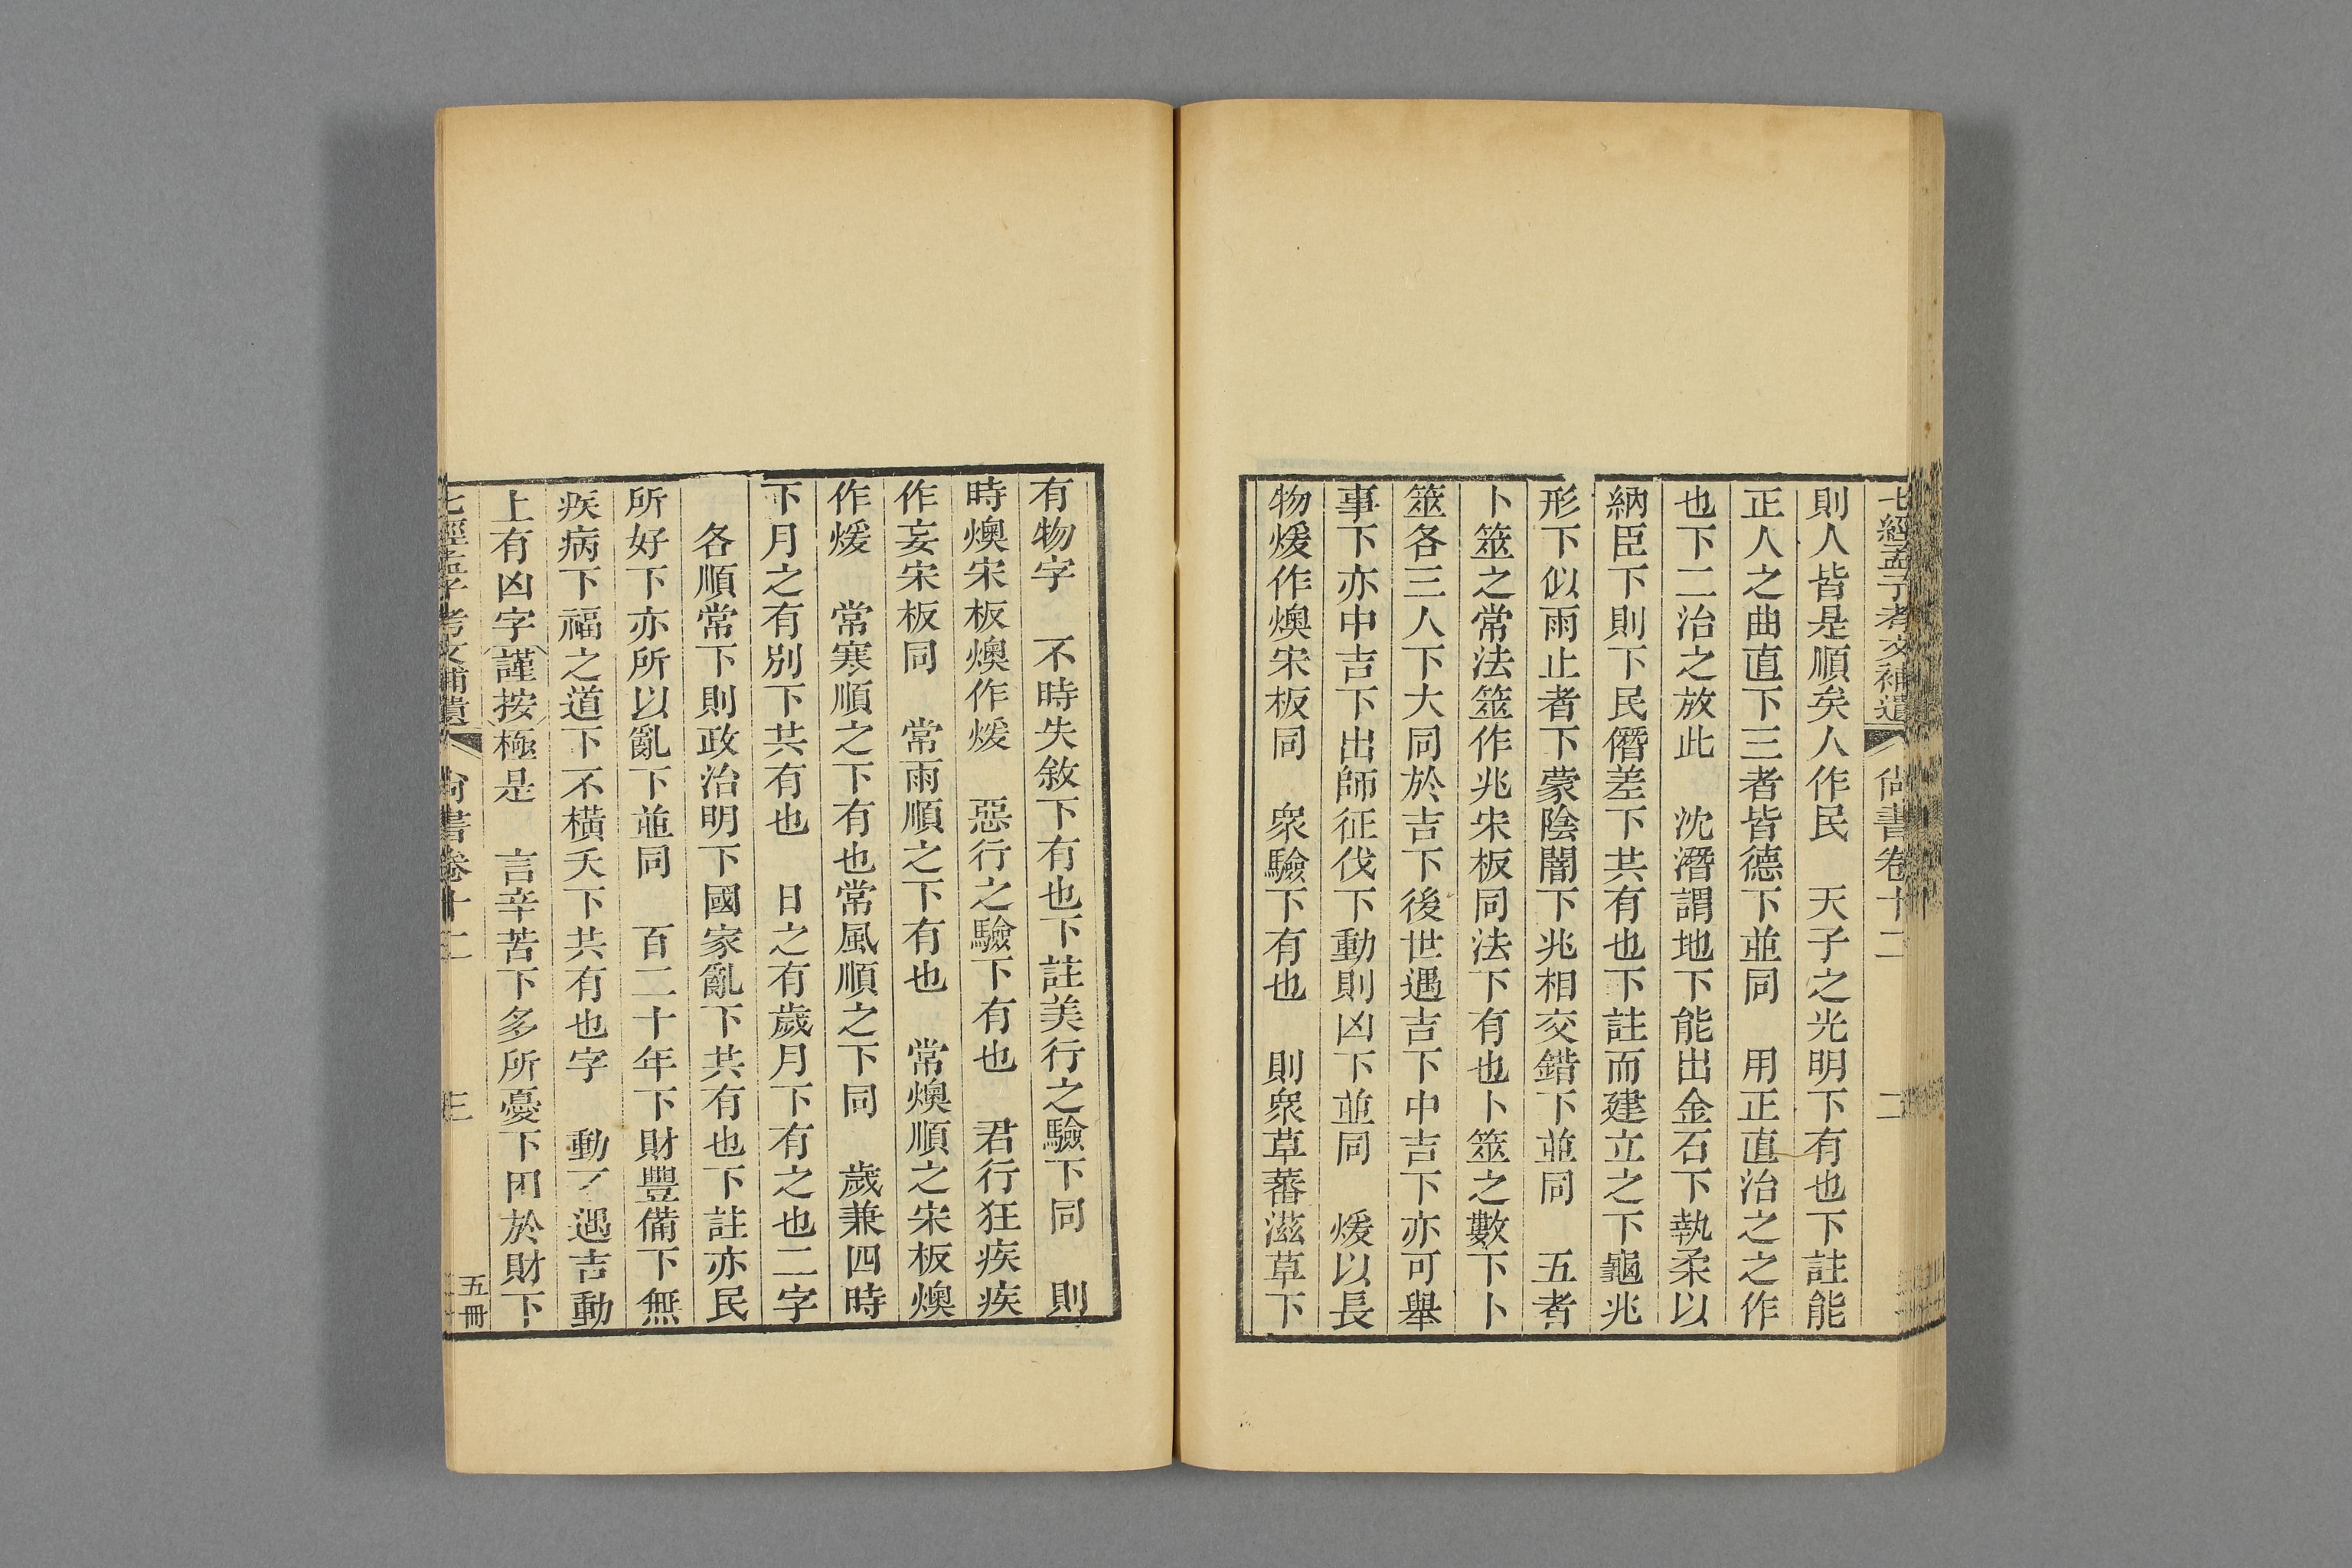 七經孟子考文補遺 尙書卷十二 二
則人皆是順矣人作民 天子之光明下有也下註能
正人之曲直下三者皆德下並同 用正直治之之作
也下二治之放此 沈潛謂地下能出金石下執柔以
納臣下則下民僭差下共有也下註而建立之下龜兆
形下似雨止者下蒙陰闇下兆相交錯下並同 五者
卜筮之常法筮作兆宋板同法下有也卜筮之數下卜
筮各三人下大同於吉下後世遇吉下中吉下亦可舉
事下亦中吉下出師征伐下動則凶下並同 煖以長
物煖作燠宋板同 衆驗下有也 則衆草蕃滋草下
有物字 不時失敘下有也下註美行之驗下同 則
時燠宋板燠作煖 惡行之驗下有也 君行狂疾疾
作妄宋板同 常雨順之下有也 常燠順之宋板燠
作煖 常寒順之下有也常風順之下同 歲兼四時
下月之有別下共有也 日之有歲月下有之也二字
各順常下則政治明下國家亂下共有也下註亦民
所好下亦所以亂下並同 百二十年下財豐備下無
疾病下福之道下不橫夭下共有也字 動 遇吉動
上有凶字謹按極是 言辛苦下多所憂下困於財下
七經孟子考文補遺 尙書卷十二 三 五冊